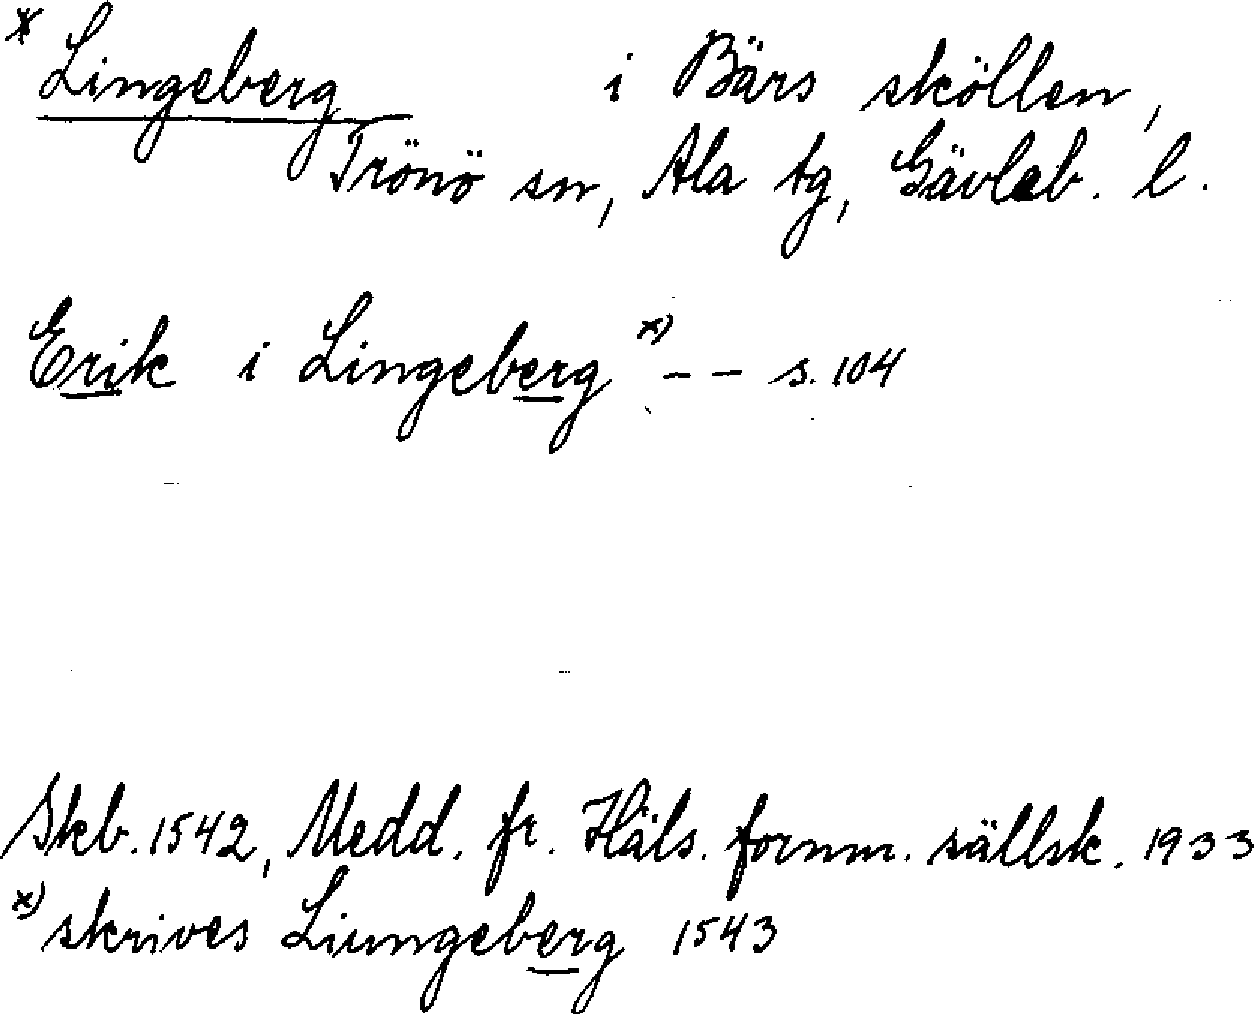 * Lingeberg i Bärs sköllen,
Trönö sn, Ala tg, Gävleb. l.
Erik i Lingeberg x) - - s. 104
Skb. 1542, Medd. fr. Häls. fornm. sällsk. 1933
x) skrives Liungeberg 1543